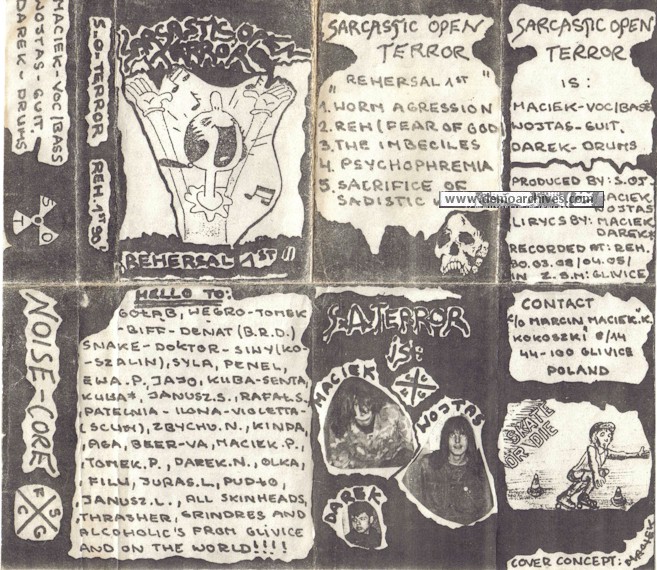 MACIEK-VOC/BASS
WOJTAS-GUIT.
DAREK-DRUMS
S.O.TERROR REH.1ST 90'
SARCASTIC OPEN
TERROR
"REHERSAL 1ST"
SARCASTIC OPEN
TERROR
"REHERSAL 1ST"
1. WORM AGRESSION
2. REH (FEAR OF GOD)
3. THE IMBECILES
4. PSYCHOPHREMIA
5. SACRIFICE OF
SADISTIC
www.demoarchives.com
SARCASTIC OPEN
TERROR
IS:
MACIEK-VOC/BASS
WOJTAS-GUIT.
DAREK-DRUMS
PRODUCED BY: S.OT
MACIEK
WOJTAS
LIRYCS BY: MACIEK
DAREK*
RECORDED AT: REH.
30.03.08/04.05/
IN Z.S.M: GLIVICE
NOISE-CORE
HELLO TO:
GOŁĄB, NEGRO-TOMEK
BIFF-DENAT (B.R.D.)
SNAKE-DOKTOR-SIWY (KO-
-SZALIN), SYLA, PENEL,
EWA.P., JAJO, KUBA-SENTA,
KUBA*, JANUSZ.S., RAFAŁ.S.
PATELNIA-ILONA-VIOLETTA-
(SCUM), ZBYCHU.N., KINDA,
AGA, BEER-VA, MACIEK.P.,
TOMEK.P., DAREK.N., OLKA,
FILU, JURAS.L, PUDŁO,
JANUSZ.L., ALL SKINHEADS,
THRASHER, GRINDRES AND
ALCOHOLIC'S FROM GLIVICE
AND ON THE WORLD!!!!
S.O.TERROR
IS:
MACIEK
WOJTAS
DAREK
CONTACT
C/O MARCIN MACIEK."K.
KOKOSZKI 8/14
44-100 GLIVICE
POLAND
SKATE
OR DIE
COVER CONCEPT: MACIEK